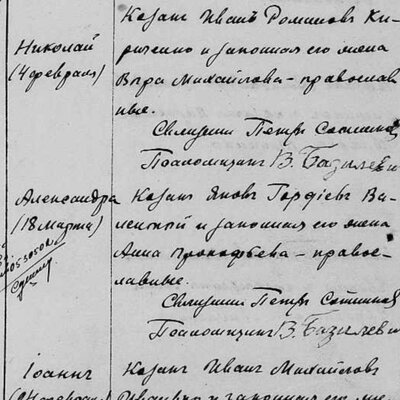 Николай
(14 февраля)
Козакъ Иванъ Романовъ Ки-
риченко и законная его жена
Вѣра Михайлова - православ
ные.
Священникъ Петръ
Псаломщикъ В. Базилевичъ
Александра
(18 марта)
Козакъ Яковъ Гордѣевъ
и законная его жена
Анна Прокофьева - право-
славные.
Священникъ Петръ
Псаломщикъ В. Базилевичъ
Іоаннъ
Козакъ Иванъ Михайловъ
и законная его